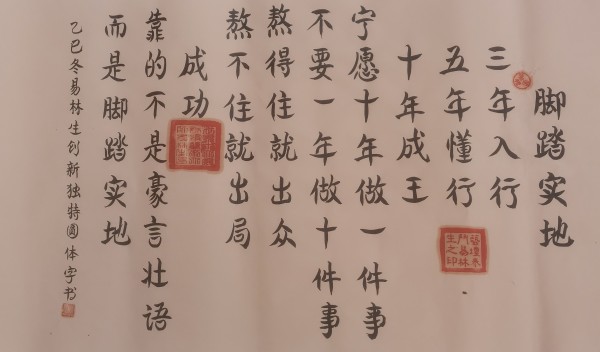 脚踏实地
三年入行
五年懂行
十年成王
宁愿十年做一件事
不要一年做十件事
熬得住就出众
熬不住就出局
成功
靠的不是豪言壮语
而是脚踏实地
乙巳冬易林生创新独特圆体字书